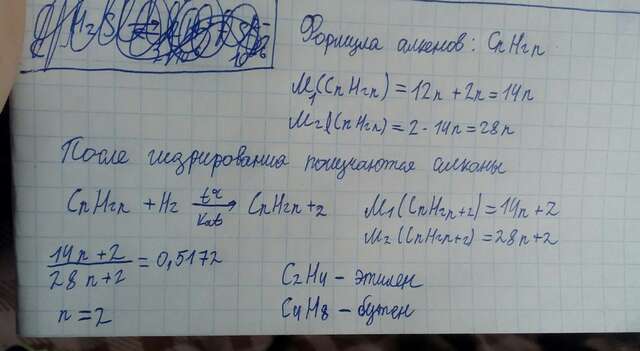 Формула алкенов: CnH2n
M1(CnH2n) = 12n + 2n = 14n
M2(CnH2n) = 2 · 14n = 28n
После гидрирования получаются алканы
CnH2n + H2 t°→кат CnH2n+2
M1(CnH2n+2) = 14n + 2
M2(CnH2n+2) = 28n + 2
14n + 2 / 28n + 2 = 0,5172
n = 2
C2H4 – этилен
C4H8 – бутен